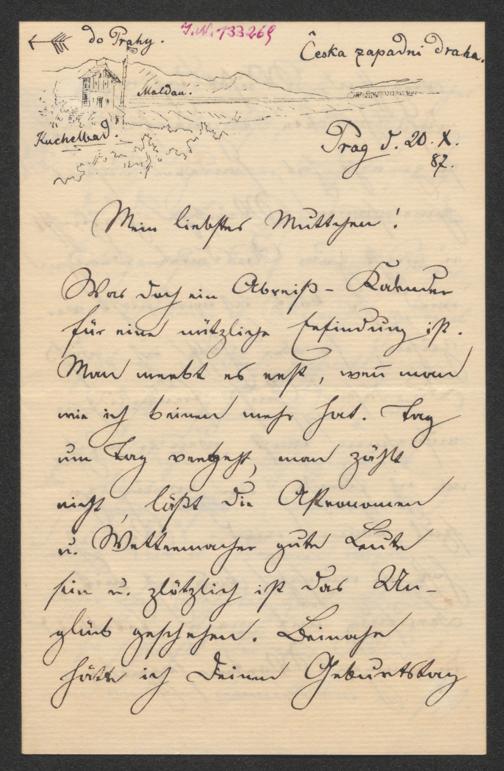 do Prahy.
I.N. 133269
Česka zapadni draha.
Moldau.
Kuchelbad.
Prag d. 20. X.
87.
Mein liebstes Muttchen!
Was doch ein Abreiß-Kalender
für eine nützliche Erfindung ist.
Man merkt es erst, weñ man
wie ich keinen mehr hat. Tag
um Tag vergeht, man zählt
nicht, läßt die Astronomen
u. Wettermacher gute Leute
sein u. plötzlich ist das Un-
glück geschehen. Beinahe
hätte ich Deinen Geburtstag